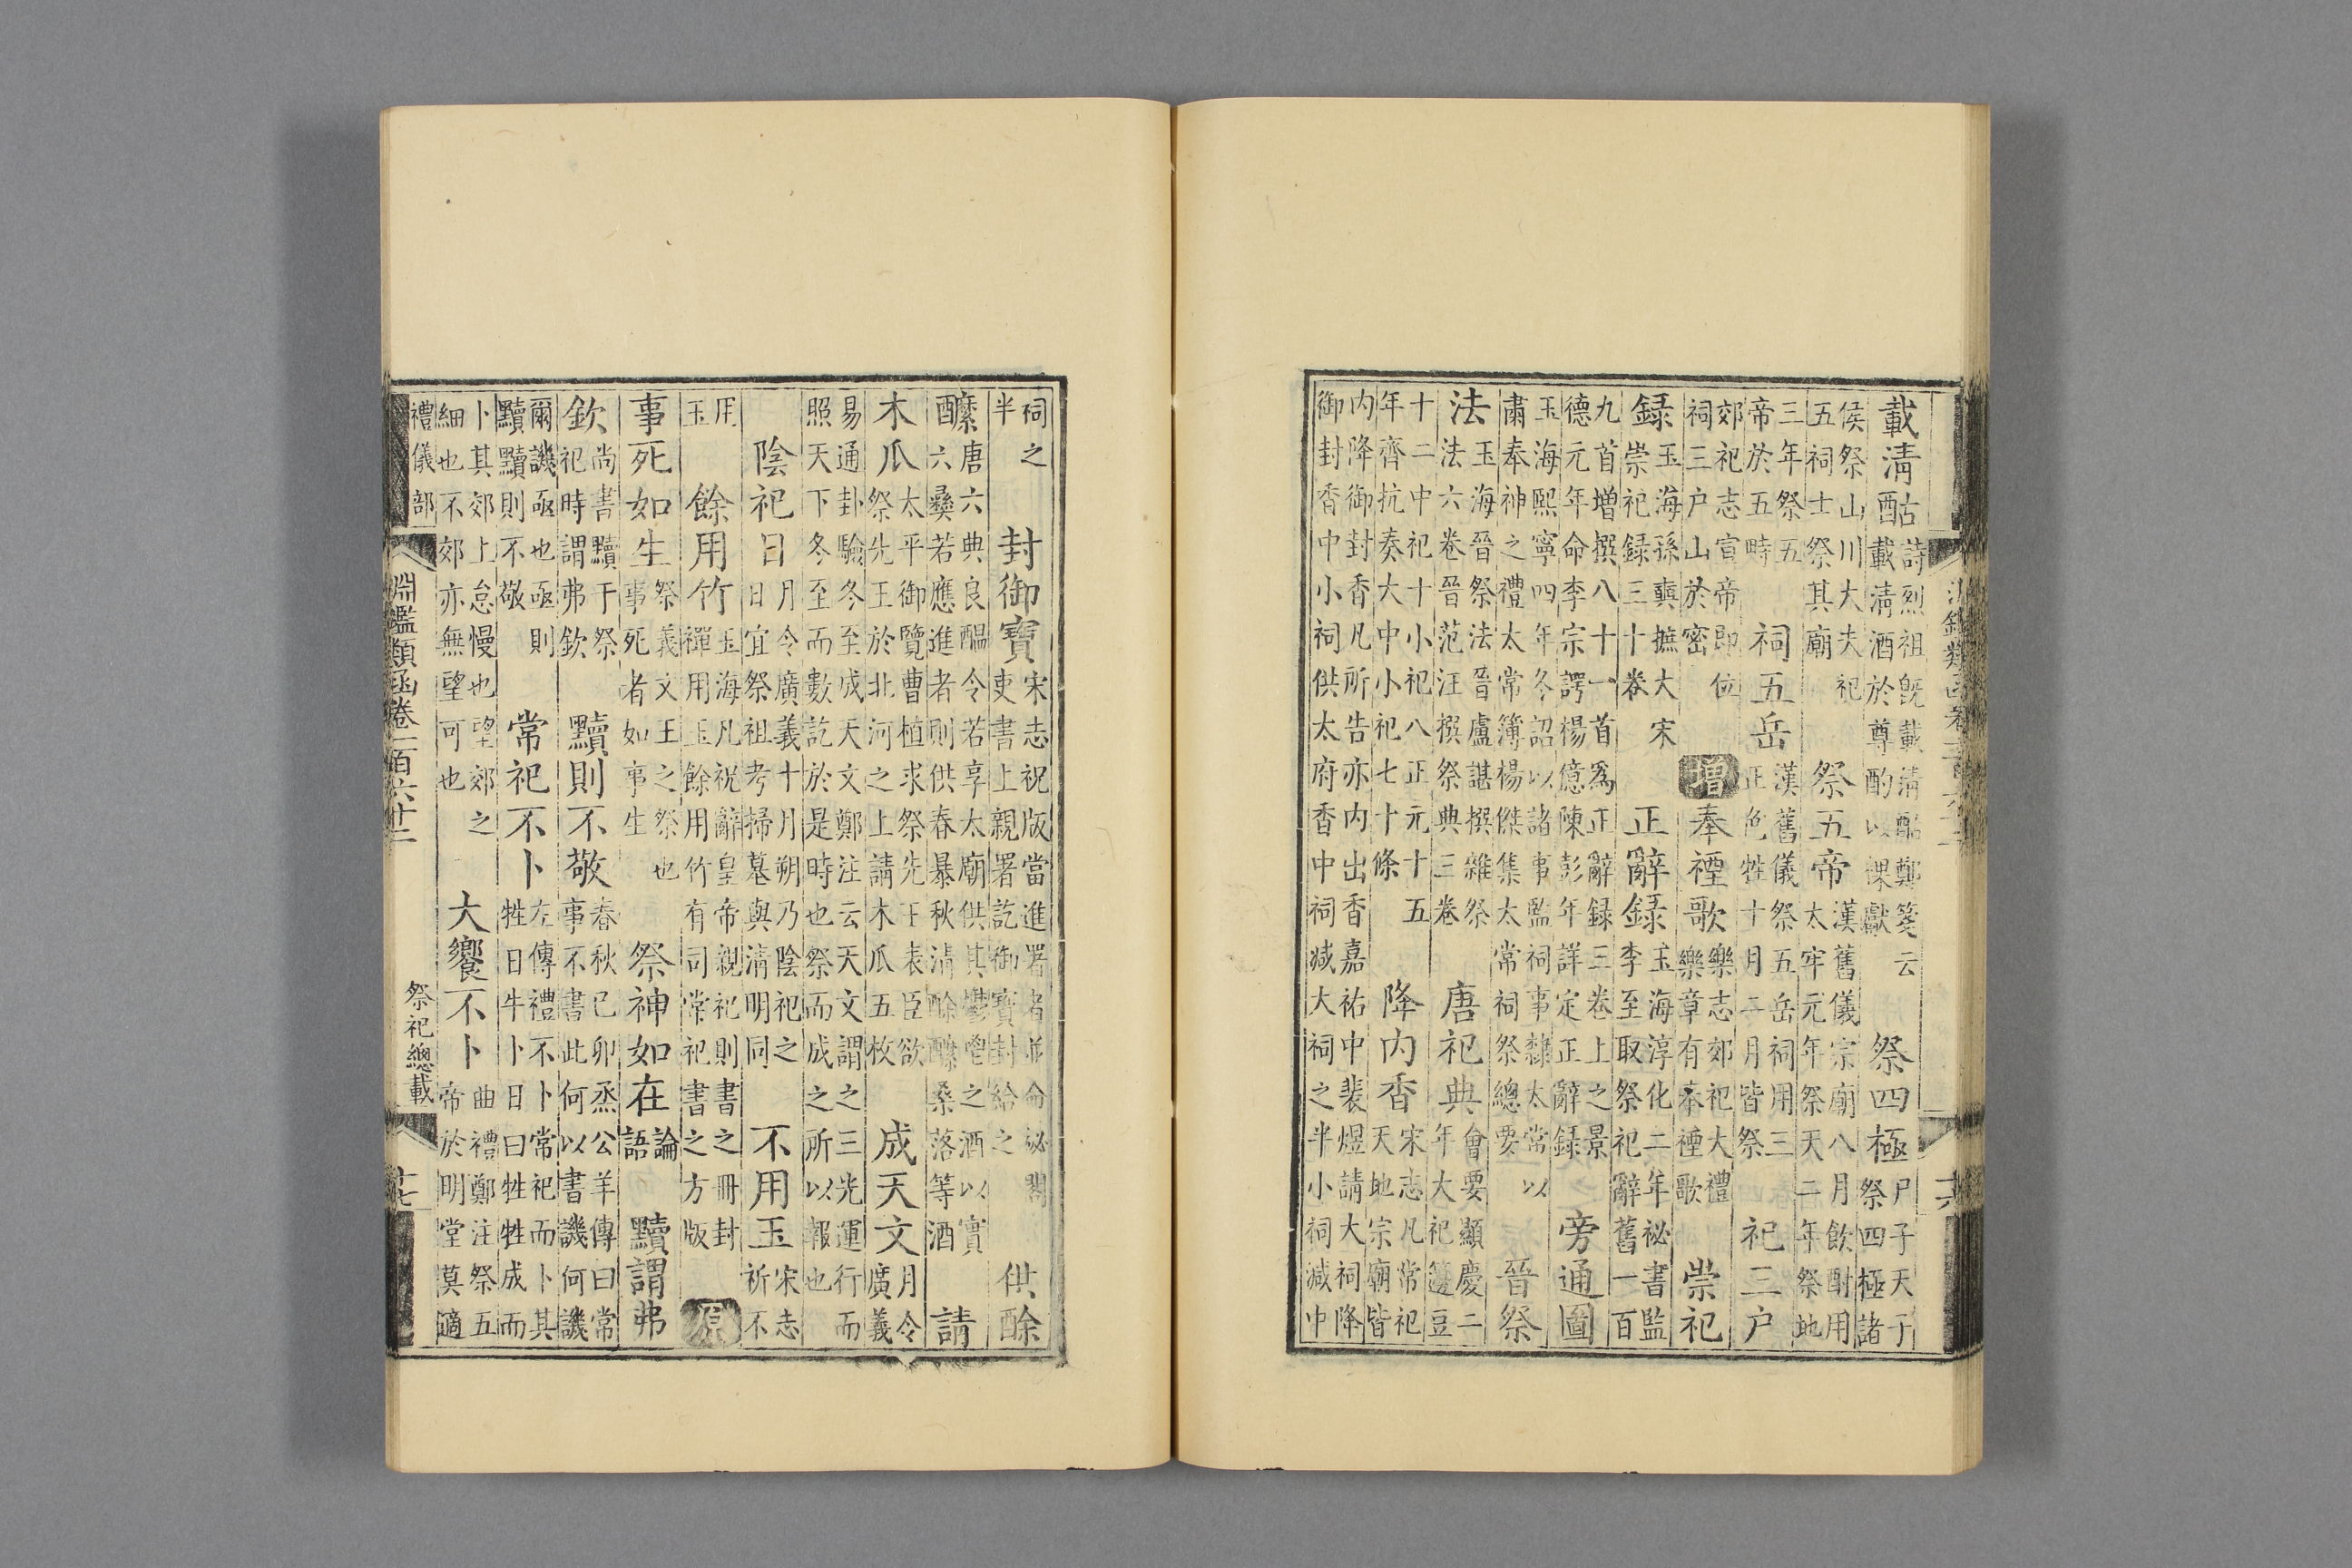 淵鑑類函卷一百六十二 十六
載清酤詩烈祖旣載清酤鄭箋云載清酒於尊酌以祼獻 祭四極尸子天子祭四極諸
侯祭山川大夫祀五祠士祭其廟 祭五帝漢舊儀宗廟八月飲酎用太牢元年祭天二年祭地
三年祭五帝於五畤 祠五岳漢舊儀祭五岳祠用三正色牲十月二月皆祭 祀三户
郊祀志宣帝即位祠三户山於密 增 奉禋歌樂志郊祀大禮樂章有奉禋歌 崇祀
錄玉海孫奭撫大宋崇祀錄三十卷 正辭錄玉海淳化二年祕書監李至取祭祀辭舊一百
九首增撰八十一首爲正辭錄三卷上之景德元年命李宗諤楊億陳彭年詳定正辭錄 旁通圖
玉海熙寧四年冬詔以諸事監祠事隸太常以肅奉神之禮太常簿楊傑集太常祠祭總要 晉祭
法玉海晉祭法晉盧諶撰雜祭法六卷晉范汪撰祭典三卷 唐祀典會要顯慶二年大祀籩豆
十二中祀十小祀八正元十五年齊抗奏大中小祀七十條 降内香宋志凡常祀天地宗廟皆
内降御封香凡所告亦内出香嘉祐中裴煜請大祠降御封香中小祠供太府香中祠减大祠之半小祠減中
祠之半 封御寶宋志祝版當進署者並命祕閣吏書上親署訖御寶封給之 供酴
醾唐六典良醖令若享太廟供其鬱鬯之酒以實六彝若應進者則供春暴秋清酴醾桑落等酒 請
木瓜太平御覽曹植求祭先王表臣欲祭先王於北河之上請木瓜五枚 成天文月令廣義
易通卦驗冬至成天文鄭注云天文謂之三光運行而照天下冬至而數訖於是時也祭而成之所以報也
陰祀日月令廣義十月朔乃陰祀之日宜祭祖考掃墓與清明同 不用玉宋志祈不
用玉 餘用竹玉海凡祝辭皇帝親祀則書之冊封禪用玉餘用竹有司常祀書之方版 原
事死如生祭義文王之祭也事死者如事生 祭神如在論語 黷謂弗
欽尚書黷于祭祀時謂弗欽 黷則不敬春秋已卯烝公羊傳曰常事不書此何以書譏何譏
爾譏亟也亟則黷黷則不敬 常祀不卜左傳禮不卜常祀而卜其牲日牛卜日曰牲牲成而
卜其郊上怠慢也望郊之細也不郊亦無望可也 大饗不卜曲禮鄭注祭五帝於明堂莫適
禮儀部 淵鑑類函卷一百六十二 祭祀總載 十七